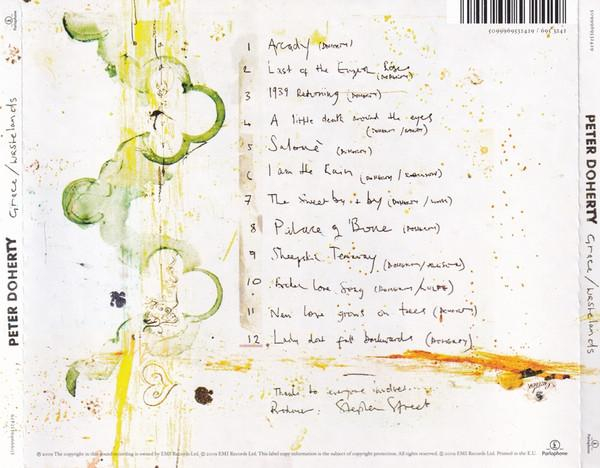 5099969531419 / 695 3141
1 Arcady (DOHERTY)
2 Last of the English Roses (DOHERTY)
3 1939 Returning (DOHERTY)
4 A little death around the eyes
(DOHERTY / BARAT)
5 Salomé (DOHERTY)
6 I am the Rain (DOHERTY / ROBINSON)
7 The sweet by + by (DOHERTY / WOLFE)
8 Palace of Bone (DOHERTY)
9 Sheepskin Tearaway (DOHERTY / ALLISTER)
10 Broken Love Song (DOHERTY / WOLFE)
11 New love grows on trees (DOHERTY)
12 Lady dont fall backwards (DOHERTY)
Thanks to everyone involved....
Producer: Stephen Street
℗ 2009 The copyright in this sound recording is owned by EMI Records Ltd. © 2009 EMI Records Ltd. This label copy information is the subject of copyright protection. All rights reserved. © 2009 EMI Records Ltd. Printed in the E.U.
Parlophone
PETER DOHERTY Grace/Wastelands
PETER DOHERTY Grace/Wastelands
Parlophone
Parlophone